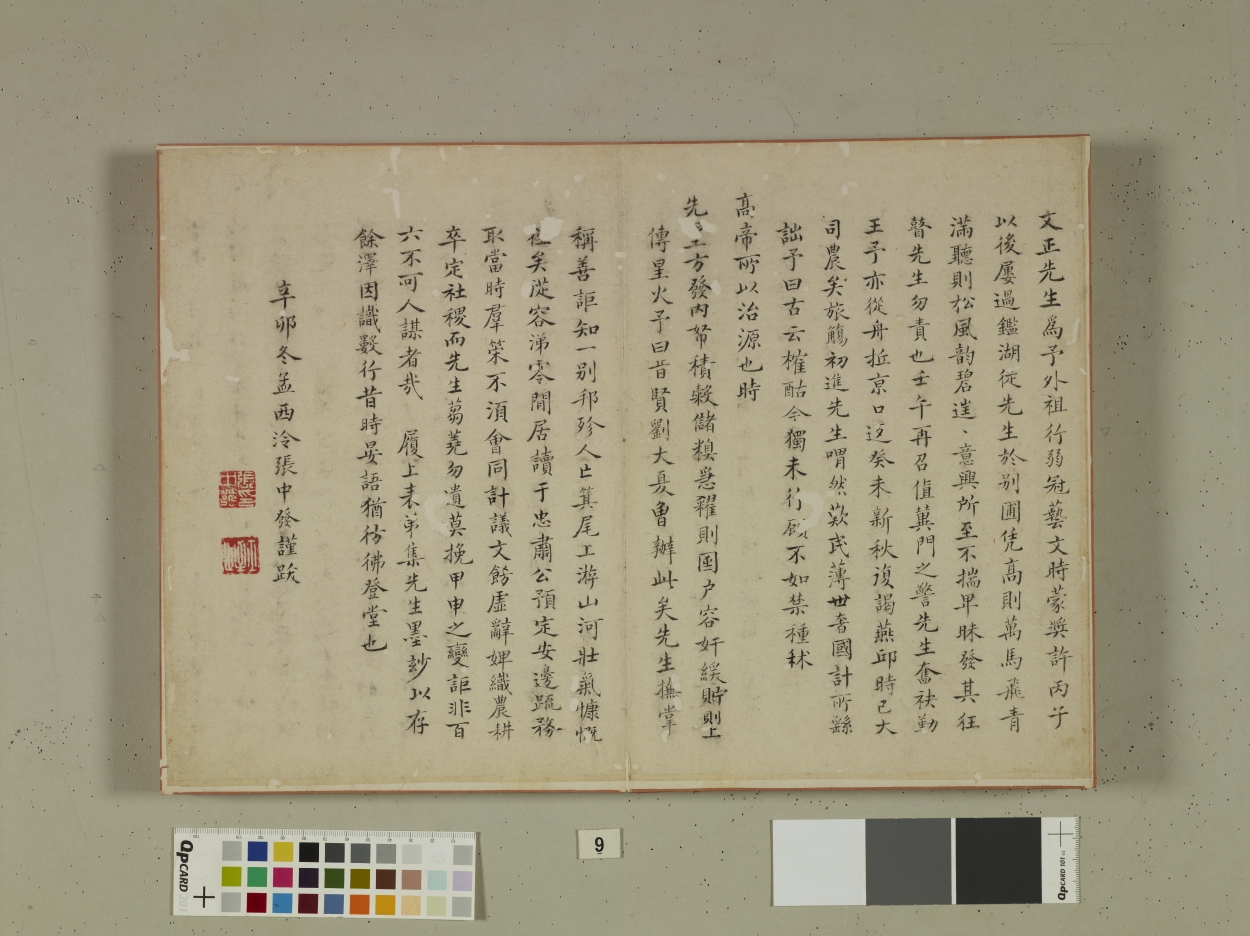 文正先生爲予外祖行弱冠藝文時蒙奬許丙子
以後屢過鑑湖從先生於别圃凭髙則萬馬飛青
滿聽則松風韵碧逹、意興所至不揣早昧發其狂
瞽先生勿責也壬午再召值冀門之警先生奮袂勤
王予亦從舟抵京口迄癸未新秋復謁燕邱時已大
司農矣旅觴初進先生喟然歎民薄世奢國計所繇
詘予曰古云榷酤今獨未行願不如禁種秫
髙帝所以治源也時
先、上方發内帑積榖儲糗急糴則囤户容奸緩貯則上
傳星火予曰昔賢劉大夏曾辦此矣先生撫掌
稱善詎知一别邦殄人亡箕尾上游山河壯氣慷慨
矣從容涕零間居讀于忠肅公預定安邊疏務
取當時羣策不須會同計議文飭虚辭婢織農耕
卒定社稷而先生蒭蕘勿遺莫挽甲申之變詎非百
六不可人謀者哉 履上表弟集先生墨妙以存
餘澤因識數行昔時晏語猶彷彿登堂也
辛卯冬孟西泠張申發謹跋
QP CARD 201
9
QP CARD 101